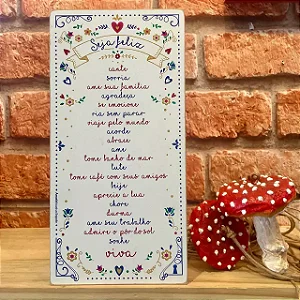 Seja feliz
cante
sorria
ame sua família
agradeça
se emocione
ria sem parar
viaje pelo mundo
acorde
abrace
ame
tome banho de mar
lute
tome café com seus amigos
beije
aprecie a lua
chore
durma
ame seu trabalho
admire o pôr-do-sol
sonhe
viva